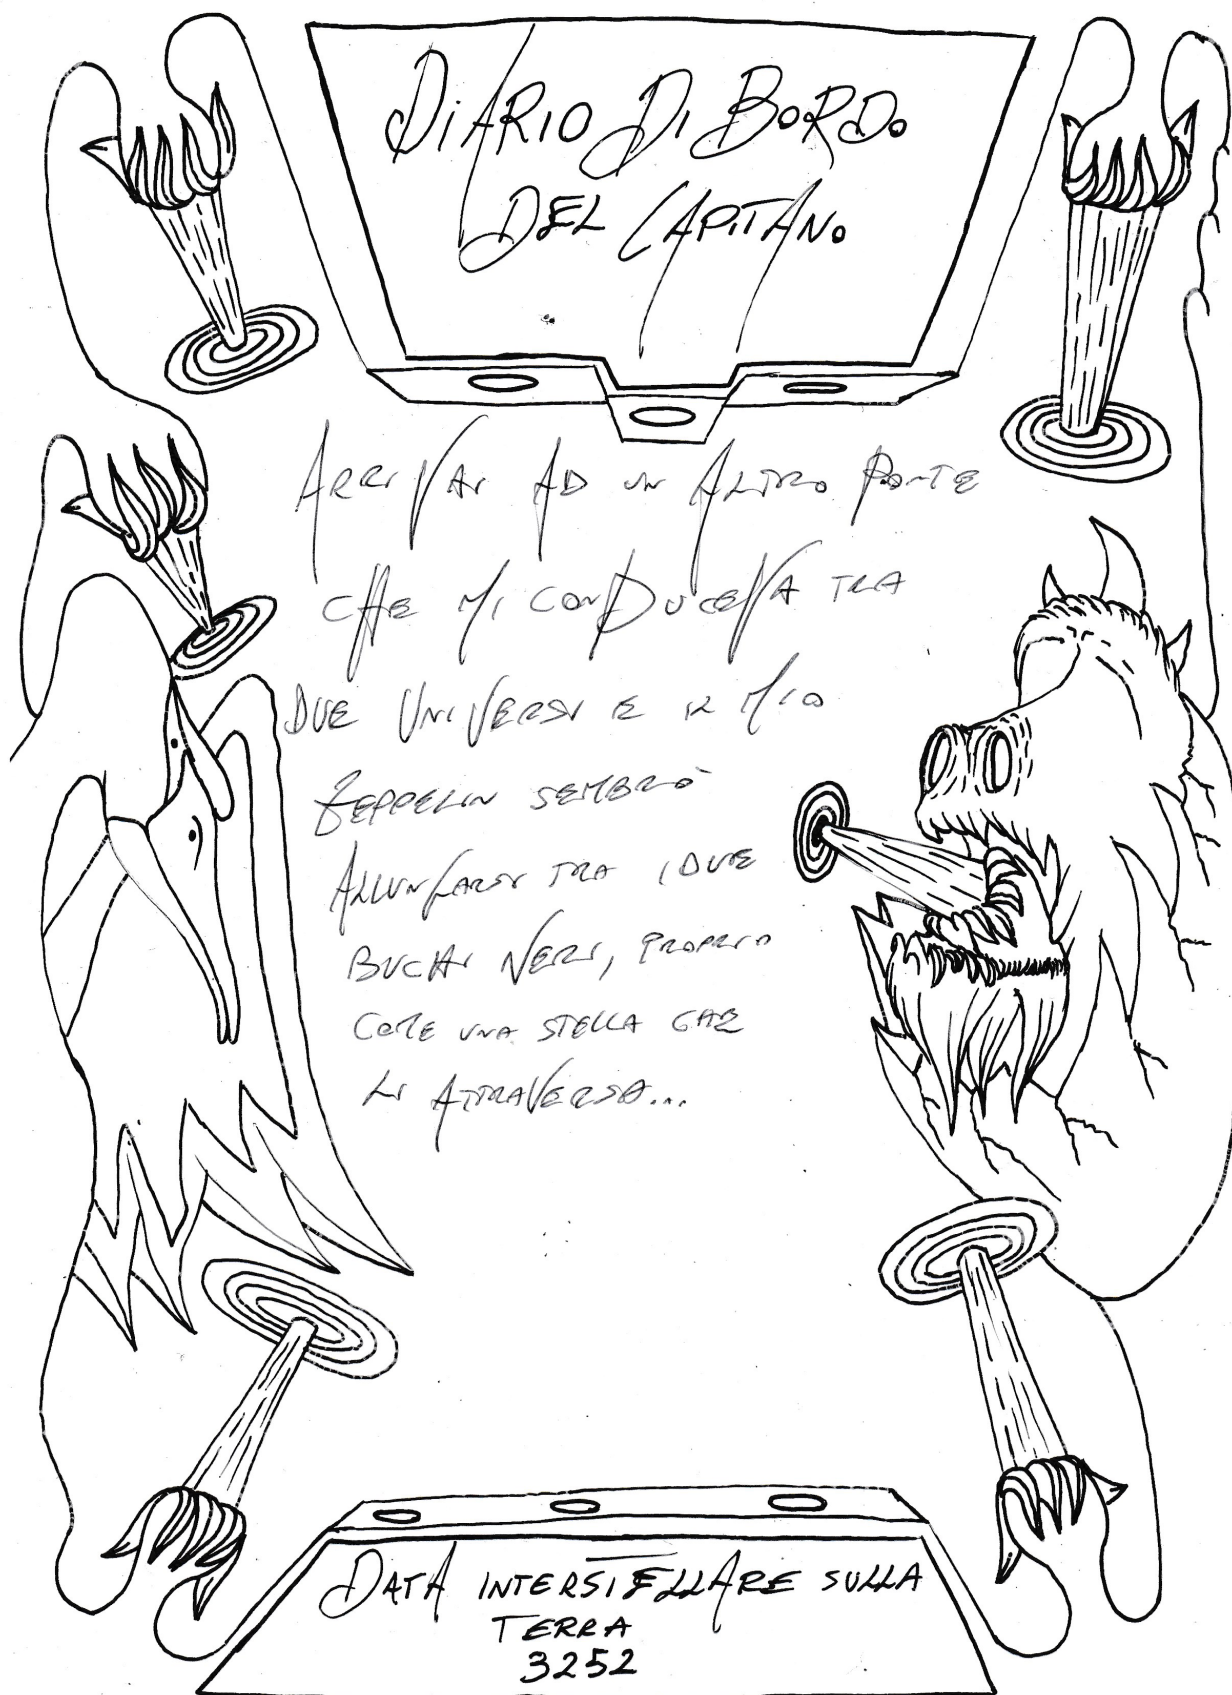 DiARIO Di BORDO
DEL CAPiTANO
ARRIVAI AD UN ALTRO PONTE
CHE MI CONDUCEVA TRA
DUE UNIVERSI E IL MIO
ZEPPELIN SEMBRÒ
ALLUNGARSI TRA I DUE
BUCHI NERI, PROPRIO
COME UNA STELLA CHE
LI ATTRAVERSA...
DATA INTERSTELLARE SULLA
TERRA
3252